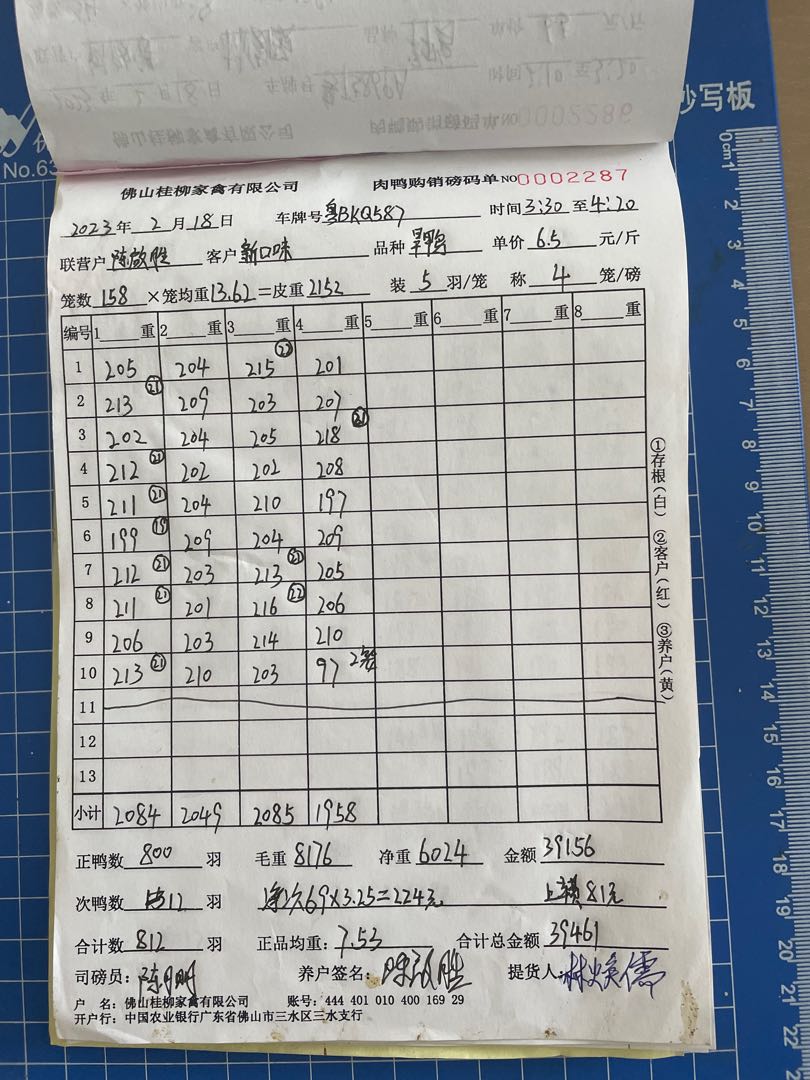 抄写板
No.63
0002286
佛山桂柳家禽有限公司 肉鸭购销磅码单 NO 0002287
2023年 2月18日 车牌号 粤BKQ587 时间 3:30 至 4:20
联营户 陈啟胜 客户 新口味 品种 旱鸭 单价 6.5 元/斤
笼数 158 ×笼均重 13.62 =皮重 2152 装 5 羽/笼 称 4 笼/磅
编号 1 重 2 重 3 重 4 重 5 重 6 重 7 重 8 重
1 205 204 215 ㉒ 201
2 213 ㉑ 209 203 207
3 202 204 205 218 ㉑
4 212 ㉑ 202 202 208
5 211 ㉑ 204 210 197
6 199 ⑲ 209 204 209
7 212 ㉑ 203 213 ㉑ 205
8 211 ㉑ 201 216 ㉒ 206
9 206 203 214 210
10 213 ㉑ 210 203 97 2笼
11
12
13
小计 2084 2049 2085 1958
正鸭数 800 羽 毛重 8176 净重 6024 金额 39156
次鸭数 12 羽 净次69×3.25=224元 81元
合计数 812 羽 正品均重: 7.53 合计总金额 39461
司磅员: 养户签名: 陈啟胜 提货人: 林焕儒
户 名: 佛山桂柳家禽有限公司 账号: 444 401 010 400 169 29
开户行: 中国农业银行广东省佛山市三水区三水支行
①存根(白) ②客户(红) ③养户(黄)
0cm 1 2 3 4 5 6 7 8 9 10 11 12 13 14 15 16 17 18 19 20 21 22